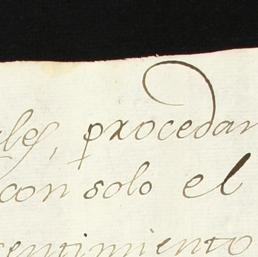 les, procedan
con solo el
sentimiento